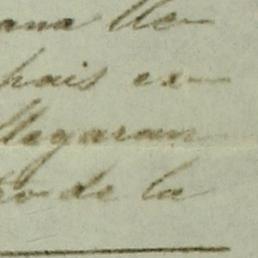 ana lle-
pais es-
llegaran
ro de la